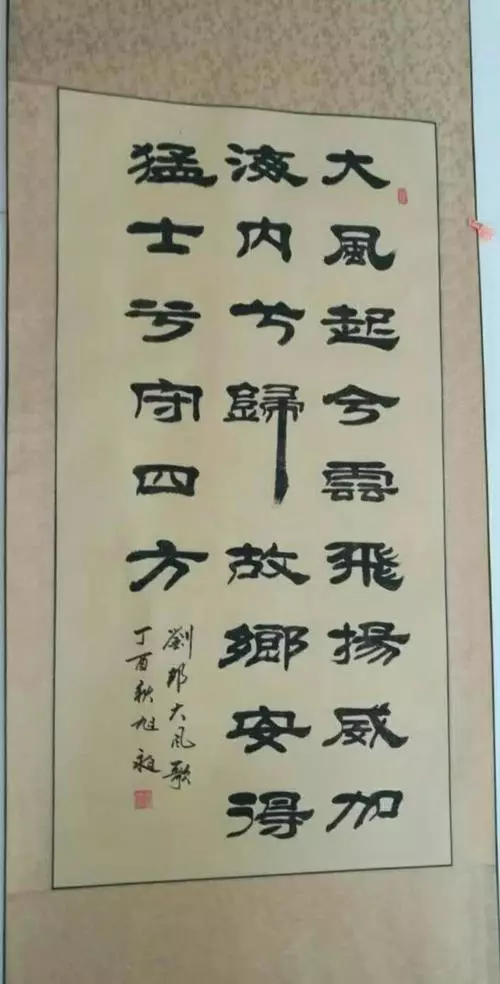 大風起兮雲飛揚威加
海内兮歸故鄉安得
猛士兮守四方
劉邦大风歌
丁酉秋旭